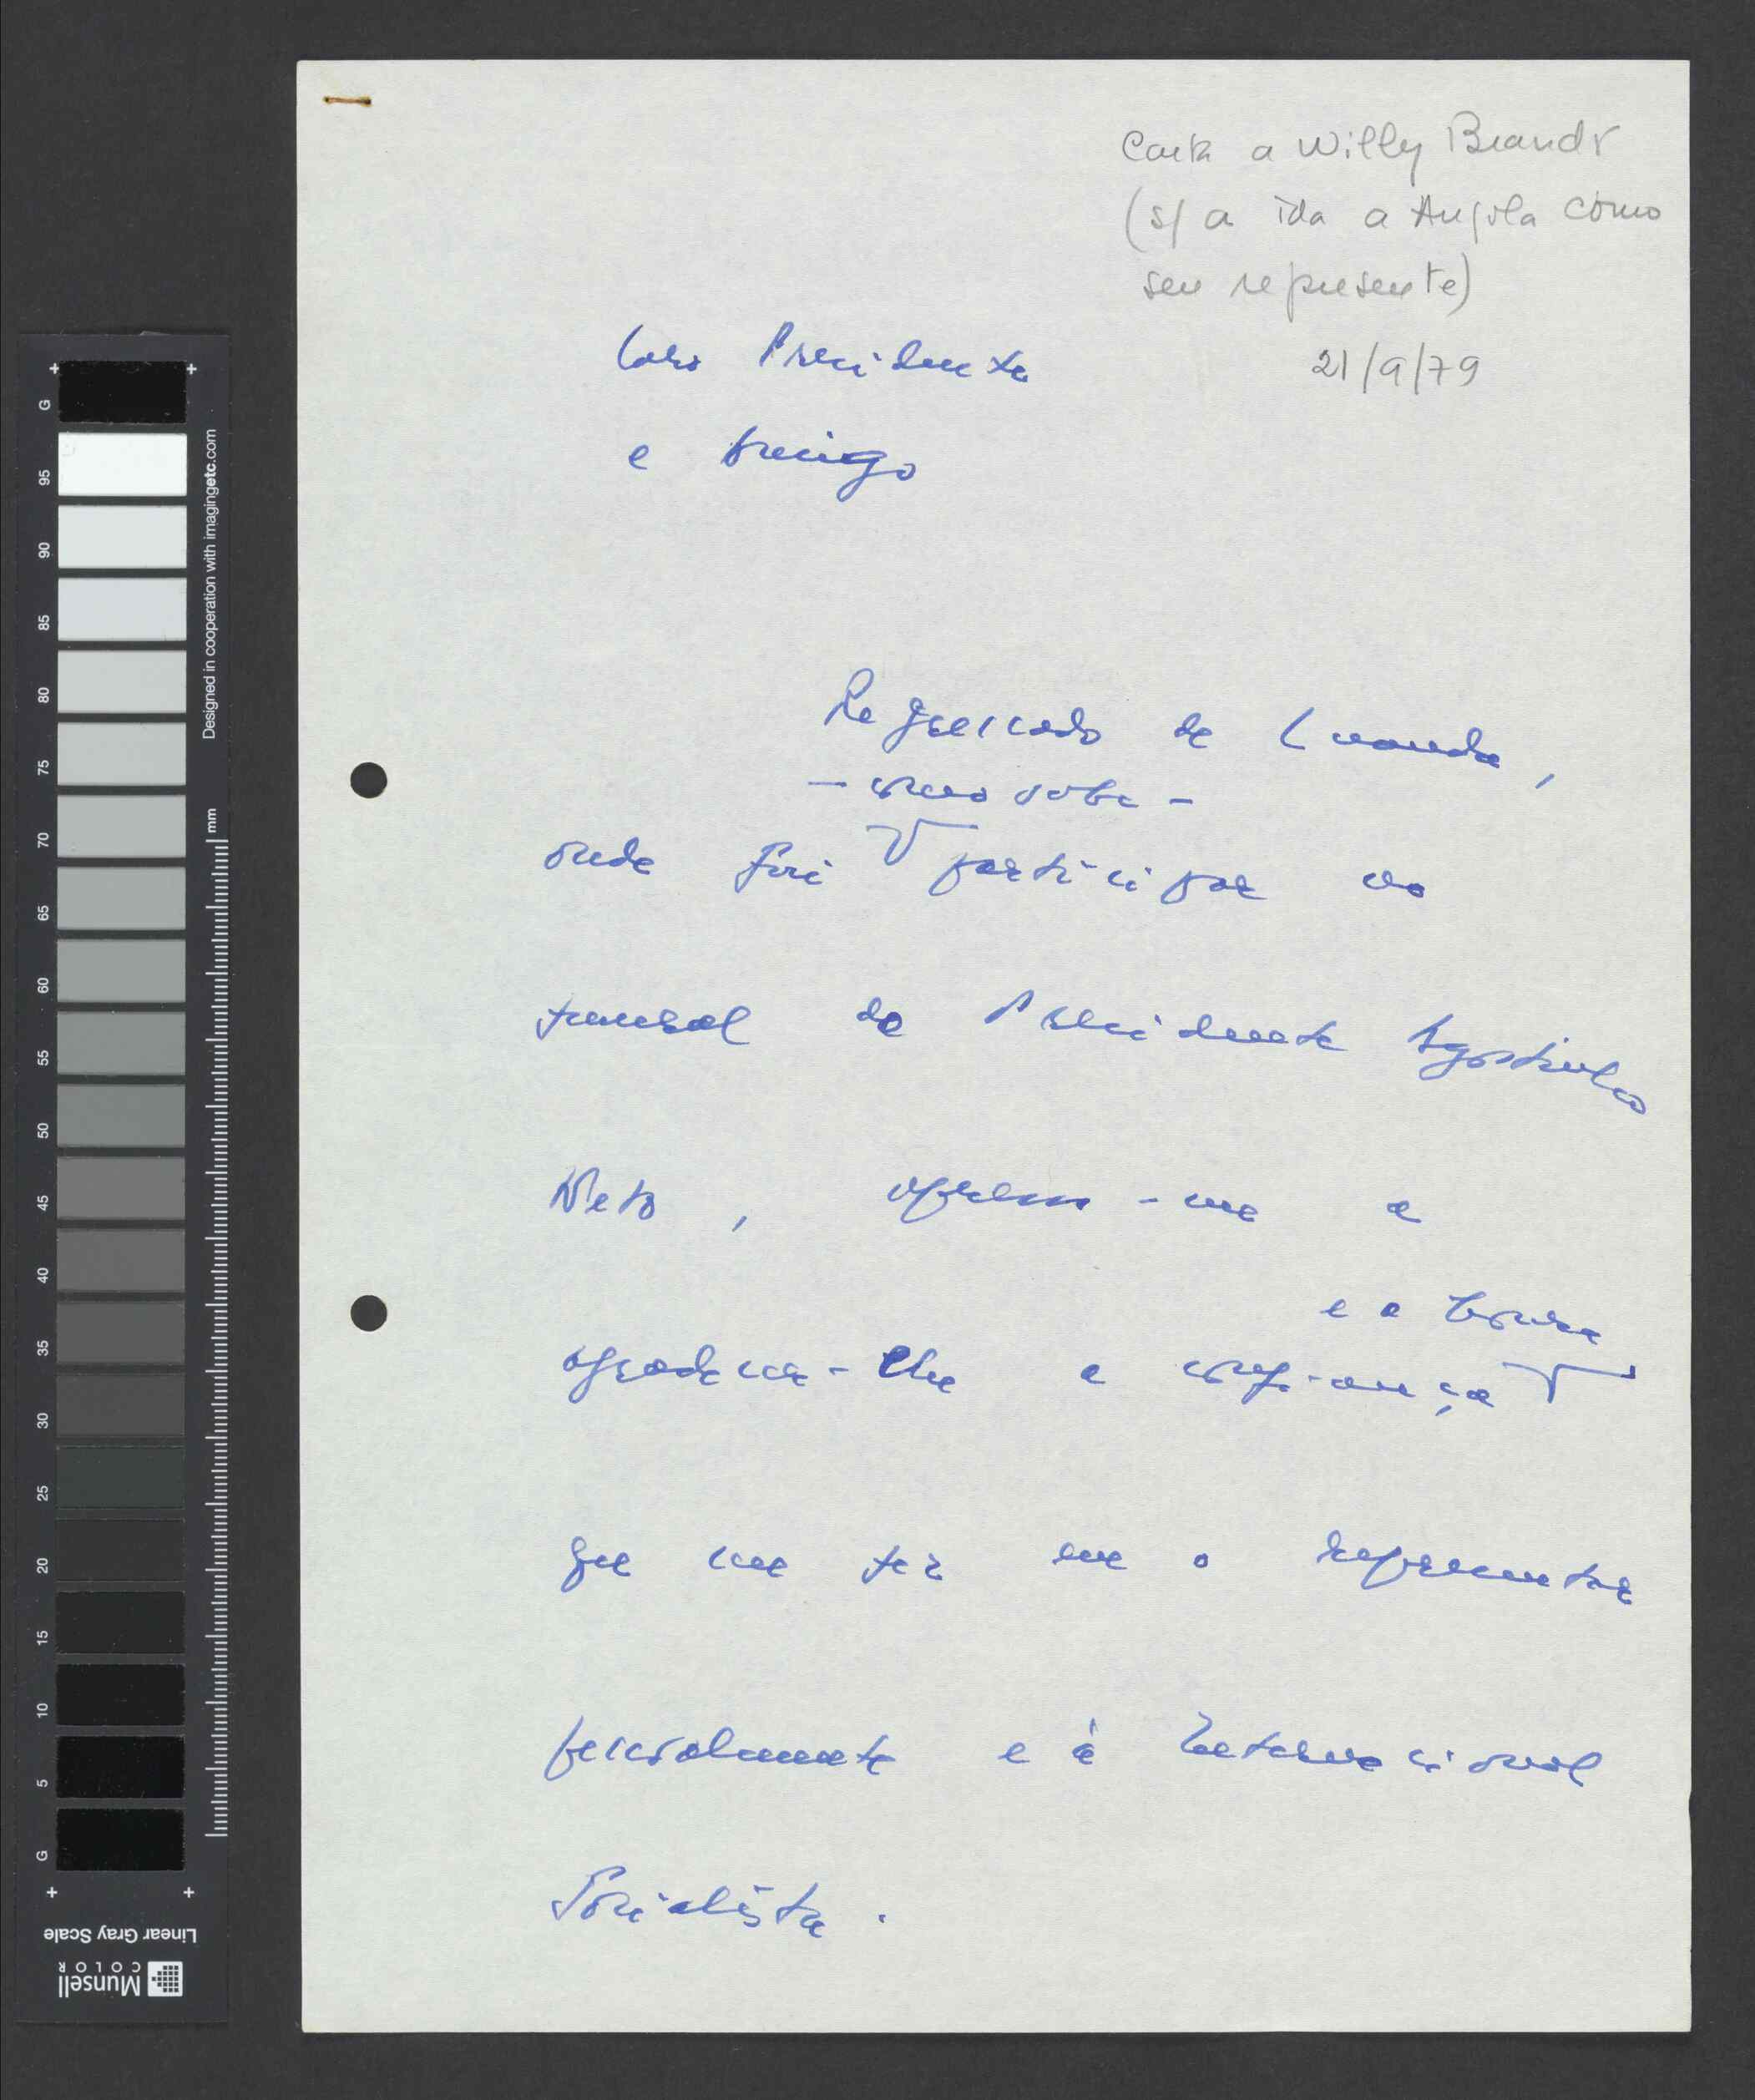 Carta a Willy Brandt
(s/ a ida a Angola como
seu represente)
21/9/79
Caro Presidente
e Amigo
Regressado de Luanda,
– como sabe –
onde fui participar no
funeral do Presidente Agostinho
Neto, apresso-me a
e a honra
agradecer-lhe a confiança
que me fez em o representar
pessoalmente e à Internacional
Socialista.
Designed in cooperation with imagingetc.com
mm
G
95
90
85
80
75
70
65
60
55
50
45
40
35
30
25
20
15
10
5
G
Linear Gray Scale
Munsell
COLOR